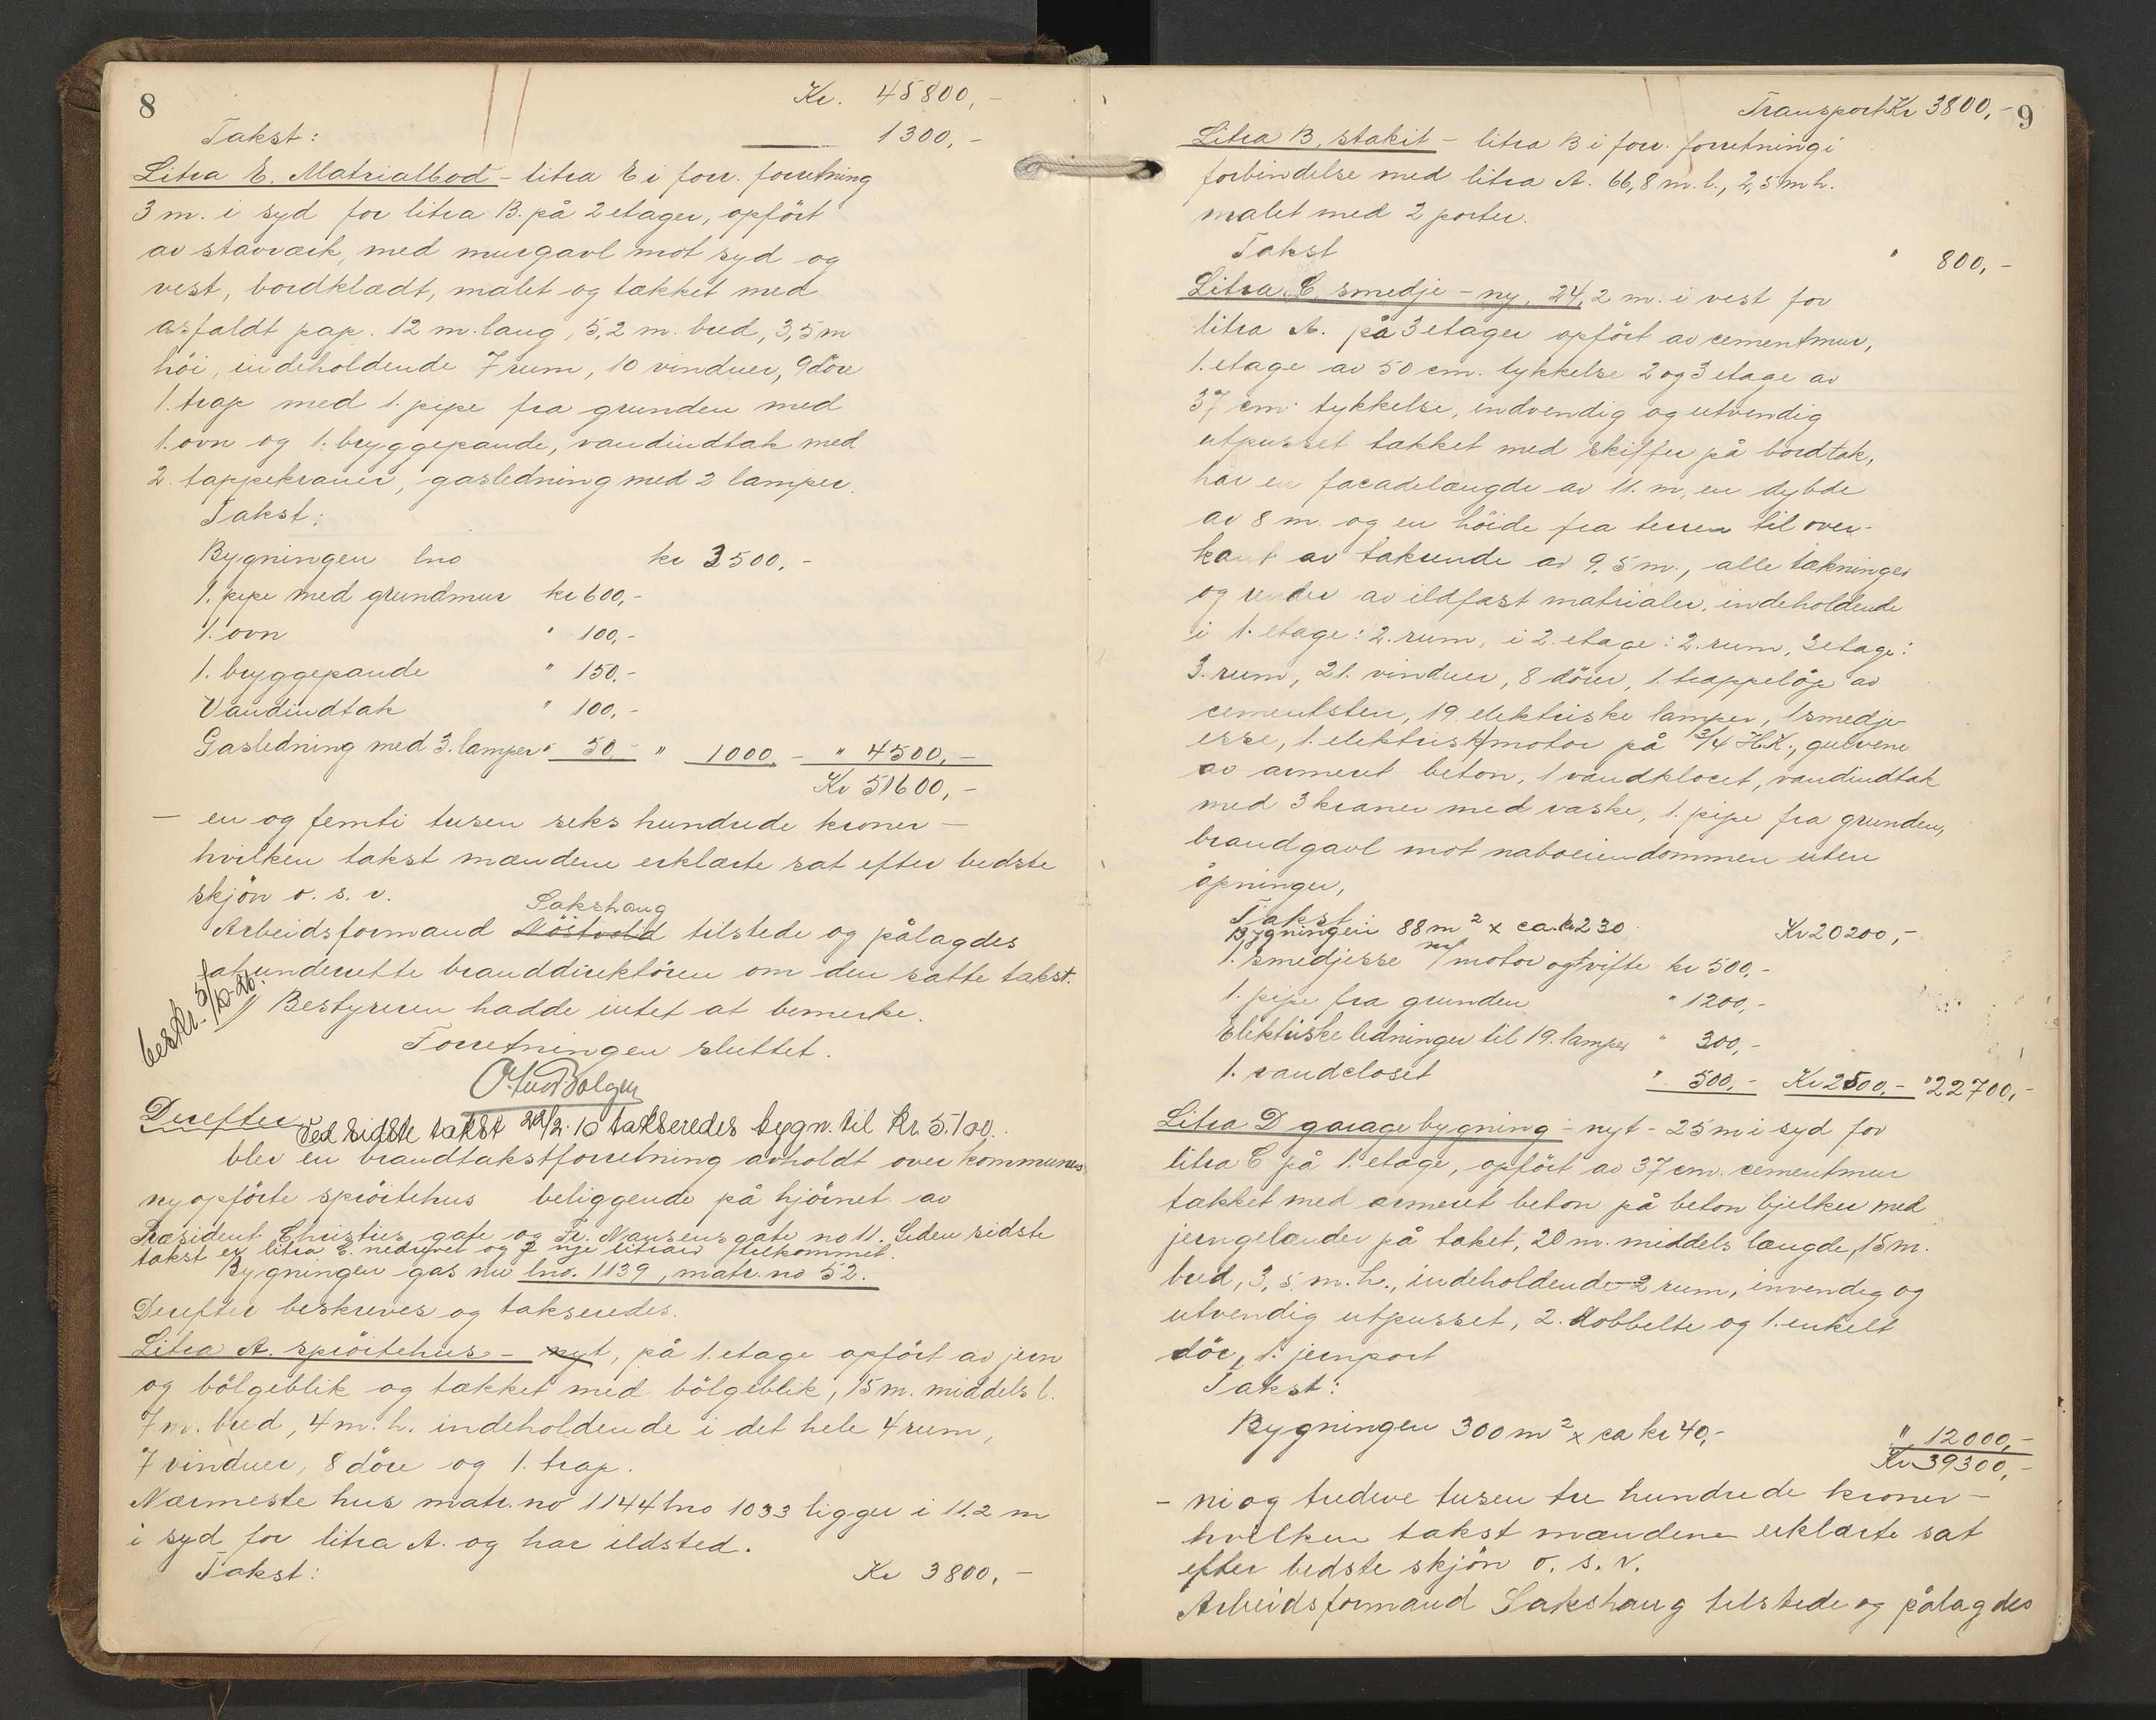 8
Kr. 45800,-
Takst: 1300,-
Litra E. Matrialbod - litra E i forr. forretning
3 m. i syd for litra B. på 2 etager, opført
av stavværk, med murgavl mot syd og
vest, bordklædt, malet og tækket med
asfaldt pap. 12 m. lang, 5,2 m. bred, 3,5 m
höi, indeholdende 7 rum, 10 vinduer, 9 döre
1. trap med 1. pipe fra grunden med
1. ovn og 1. bryggepande, vandindtak med
2. tappekraner, gasledning med 2 lamper.
Takst:
Bygningen lno kr 3500,-
1. pipe med grundmur kr 600,-
1. ovn " 100,-
1. bryggepande " 150,-
Vandindtak " 100,-
Gasledning med 3. lamper " 50,- " 1000 - " 4500,-
Kr 51600,-
- en og femti tusen seks hundrede kroner -
hvilken takst mændene erklærte sat efter bedste
skjön o. s. v.
Sakshaug
Arbeidsformand Nöstvold tilstede og pålagdes
at underrette branddirektören om den satte takst.
beskr. 5/10-20.
Bestyreren hadde intet at bemerke.
Forretningen sluttet.
Derefter
Ved sidste takst 22/2.10 takseredes bygn. til Kr. 5.100.
blev en brandtakstforretning avholdt over kommunens
nyopførte spröitehus beliggende på hjörnet av
Præsident Christies gate og Fr. Nansens gate no 11. Siden sidste
takst er litra C. nedrevet og 2 nye litraer tilkommet.
Bygningen gas nu lno. 1139, matr. no 52.
Derefter beskreves og takseredes.
Litra A. spröitehus - nyt, på 1. etage opført av jern
og bölgeblik og tækket med bölgeblik, 15 m. middels l.
7 m. bred, 4 m. h. indeholdende i det hele 4 rum,
7 vinduer, 8 döre og 1. trap.
Nærmeste hus matr. no 1144 lno 1033 ligger i 11.2 m
i syd for litra A. og har ildsted.
Takst: Kr 3800,-
Transport Kr 3800,-
9
Litra B, stakit - litra B i forr. forretning i
forbindelse med litra A. 66,8 m. l., 2,5 m h.
malet med 2 porter.
Takst " 800,-
Litra C, smedje - ny, 24,2 m. i vest for
litra A. på 3 etager opført av cementmur,
1. etage av 50 cm. tykkelse 2 og 3 etage av
37 cm. tykkelse, indvendig og utvendig
utpusset tækket med skiffer på bordtak,
har en facadelængde av 11. m, en dybde
av 8 m. og en höide fra terren til over-
kant av takrende av 9,5 m., alle tækninger
og render av ildfast matrialer, indeholdende
i 1. etage: 2. rum, i 2. etage: 2. rum, 3 etage:
3. rum, 21. vinduer, 8 dörer, 1. trappelöp av
cementsten, 19. elektriske lamper, 1 smedje-
esse, 1. elektrisk motor på 3/4 H.K., gulvene
av armeret beton, 1 vandklocet, vandindtak
med 3 kraner med vaske, 1. pipe fra grunden,
brandgavl mot naboeiendommen uten
åpninger,
Takst:
Bygningen: 88 m² x ca. kr 230 Kr 20200,-
1. smedjesse m/ motor og vifte kr 500,-
1. pipe fra grunden " 1200,-
Elektriske ledninger til 19. lamper " 300,-
1. vandcloset " 500,- Kr 2500,- " 22700,-
Litra D garage bygning - nyt - 25 m i syd for
litra C på 1. etage, opført av 37 cm. cementmur
tækket med armeret beton på beton bjelker med
jerngelænder på taket, 20 m. middels længde, 15 m.
bred, 3,5 m. h., indeholdende 2 rum, invendig og
utvendig utpusset, 2. dobbelte og 1. enkelt
dör, 1. jernport
Takst:
Bygningen 300 m² x ca kr 40,- " 12000,-
Kr 39300,-
- ni og tredeve tusen tre hundrede kroner -
hvilken takst mændene erklærte sat
efter bedste skjön o. s. v.
Arbeidsformand Sakshaug tilstede og pålagdes